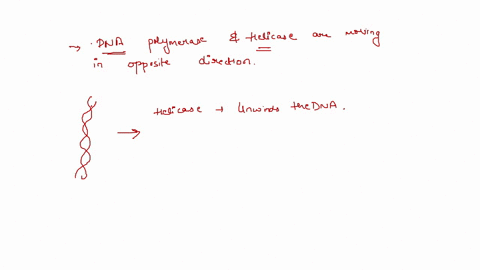 → DNA polymerase & Helicase are moving
in opposite direction.
Helicase → Unwinds the DNA.